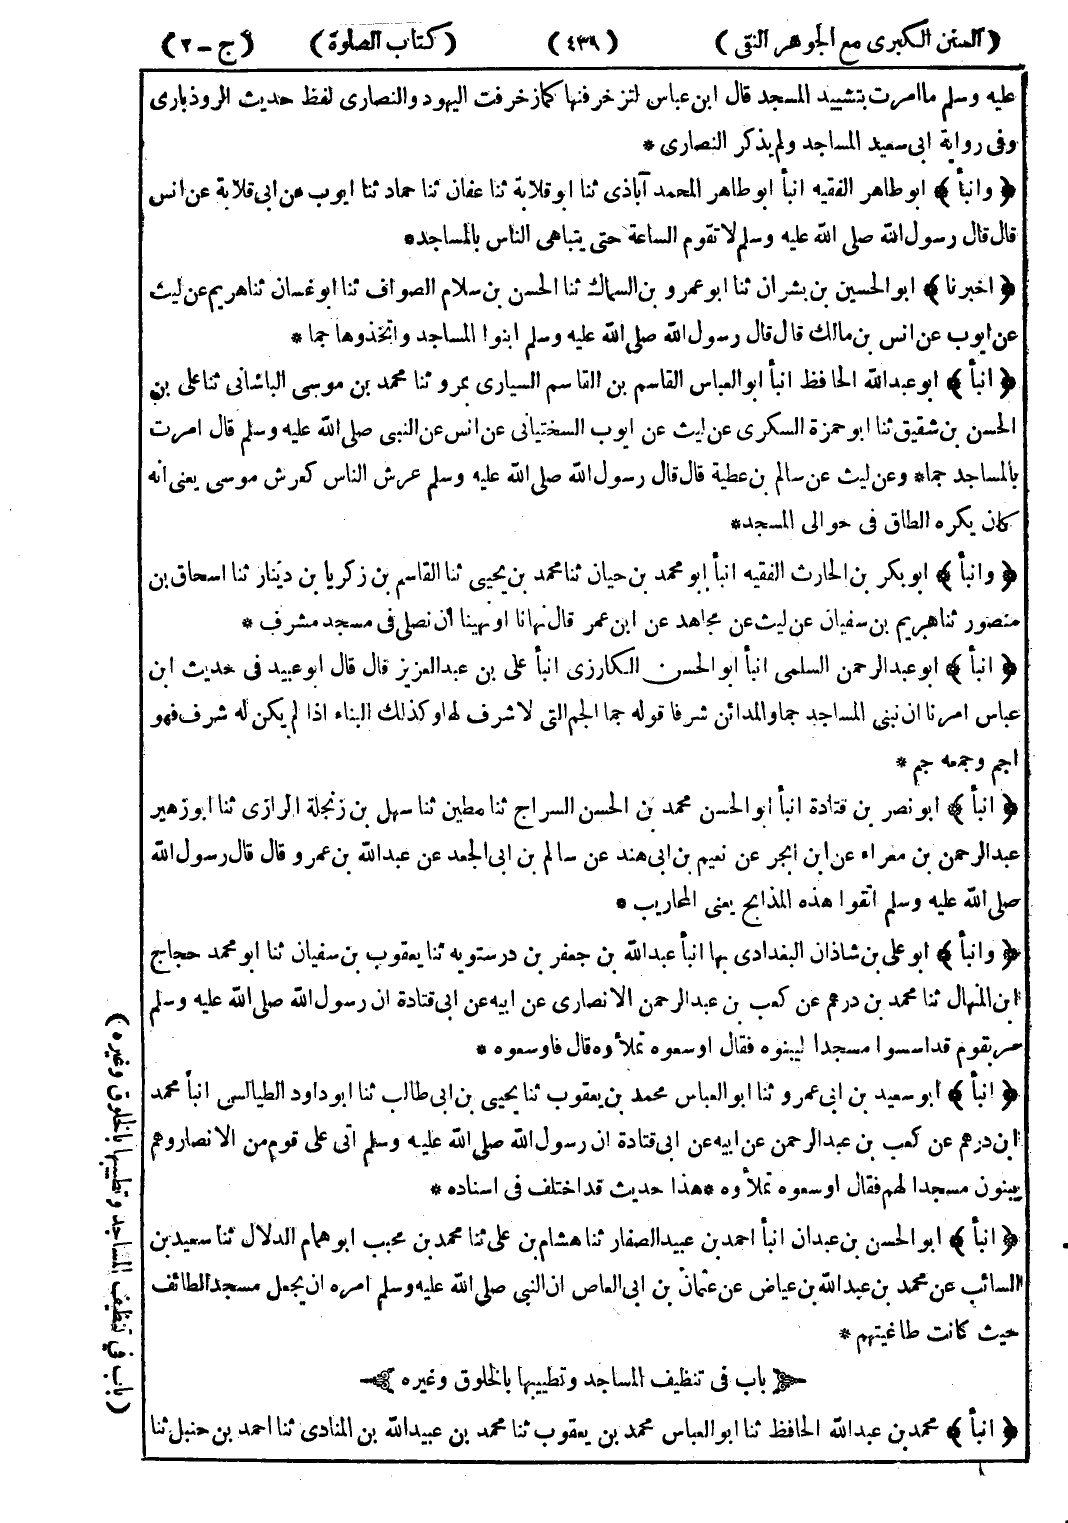 (السنن الكبرى مع الجوهر النقى) (٤٣٩) (كتاب الصلوة) (ج - ٢)
عليه وسلم ما امرت بتشييد المسجد قال ابن عباس لتزخرفنها كما زخرفت اليهود والنصارى لفظ حديث الروذبارى
وفى رواية ابى سعيد المساجد ولم يذكر النصارى *
﴿ وانبأ ﴾ ابو طاهر الفقيه انبأ ابو طاهر المحمد آباذى ثنا ابو قلابة ثنا عفان ثنا حماد ثنا ايوب عن ابى قلابة عن انس
قال قال رسول الله صلى الله عليه وسلم لا تقوم الساعة حتى يتباهى الناس بالمساجد *
﴿ اخبرنا ﴾ ابو الحسين بن بشران ثنا ابو عمرو بن السماك ثنا الحسن بن سلام الصواف ثنا ابو غسان ثنا هريم عن ليث
عن ايوب عن انس بن مالك قال قال رسول الله صلى الله عليه وسلم ابنوا المساجد واتخذوها جما *
﴿ انبأ ﴾ ابو عبدالله الحافظ انبأ ابو العباس القاسم بن القاسم السيارى بمرو ثنا محمد بن موسى الباشانى ثنا على بن
الحسن بن شقيق ثنا ابو حمزة السكرى عن ليث عن ايوب السختيانى عن انس عن النبى صلى الله عليه وسلم قال امرت
بالمساجد جما * وعن ليث عن سالم بن عطية قال قال رسول الله صلى الله عليه وسلم عرش الناس كعرش موسى يعنى انه
كان يكره الطاق فى حوالى المسجد *
﴿ وانبأ ﴾ ابو بكر بن الحارث الفقيه انبأ ابو محمد بن حيان ثنا محمد بن يحيى ثنا القاسم بن زكريا بن دينار ثنا اسحاق بن
منصور ثنا هريم بن سفيان عن ليث عن مجاهد عن ابن عمر قال نهانا او نهينا أن نصلى فى مسجد مشرف *
﴿ انبأ ﴾ ابو عبد الرحمن السلمى انبأ ابو الحسن الكارزى انبأ على بن عبد العزيز قال قال ابو عبيد فى حديث ابن
عباس امرنا ان نبنى المساجد جما والمدائن شرفا قوله جما الجم التى لا شرف لها وكذلك البناء اذا لم يكن له شرف فهو
اجم وجمعه جم *
﴿ انبأ ﴾ ابو نصر بن قتادة انبأ ابو الحسن محمد بن الحسن السراج ثنا مطين ثنا سهل بن زنجلة الرازى ثنا ابو زهير
عبد الرحمن بن مغراء عن ابن ابجر عن نعيم بن ابى هند عن سالم بن ابى الجعد عن عبدالله بن عمرو قال قال رسول الله
صلى الله عليه وسلم اتقوا هذه المذابح يعنى المحاريب *
﴿ وانبأ ﴾ ابو على بن شاذان البغدادى بها انبأ عبدالله بن جعفر بن درستويه ثنا يعقوب بن سفيان ثنا ابو محمد حجاج
ابن المنهال ثنا محمد بن درهم عن كعب بن عبد الرحمن الانصارى عن ابيه عن ابى قتادة ان رسول الله صلى الله عليه وسلم
مر بقوم قد اسسوا مسجدا ليبنوه فقال اوسعوه تملأوه قال فاوسعوه *
﴿ انبأ ﴾ ابو سعيد بن ابى عمرو ثنا ابو العباس محمد بن يعقوب ثنا يحيى بن ابى طالب ثنا ابو داود الطيالسى انبأ محمد
ابن درهم عن كعب بن عبد الرحمن عن ابيه عن ابى قتادة ان رسول الله صلى الله عليه وسلم اتى على قوم من الانصار وهم
يبنون مسجدا لهم فقال اوسعوه تملأوه * هذا حديث قد اختلف فى اسناده *
﴿ انبأ ﴾ ابو الحسن بن عبدان انبأ احمد بن عبيد الصفار ثنا هشام بن على ثنا محمد بن محبب ابو همام الدلال ثنا سعيد بن
السائب عن محمد بن عبدالله بن عياض عن عثمان بن ابى العاص ان النبى صلى الله عليه وسلم امره ان يجعل مسجد الطائف
حيث كانت طاغيتهم *
باب فى تنظيف المساجد وتطييبها بالخلوق وغيره
﴿ انبأ ﴾ محمد بن عبدالله الحافظ ثنا ابو العباس محمد بن يعقوب ثنا محمد بن عبيدالله بن المنادى ثنا احمد بن حنبل ثنا
(باب فى تنظيف المساجد وتطييبها بالخلوق وغيره)